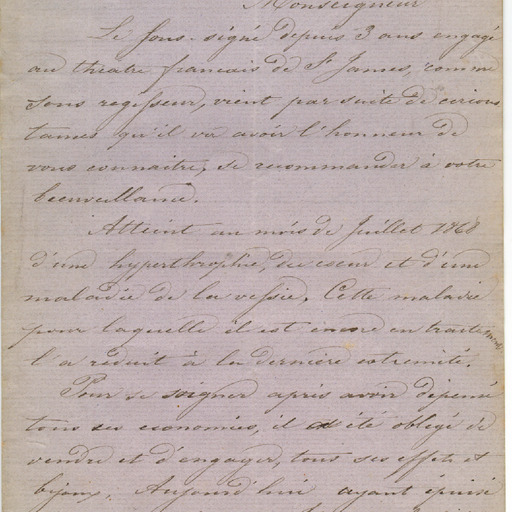 Monseigneur
Le Sous-signé depuis 3 ans engagé
au théatre français de St James, comme
sous regisseur, vient par suite de
tames qu'il va avoir l'honneur de
vous connaitre, se recommander à votre
bienveillance.
Atteint au mois de Juillet 1868
d'une hyperthrophie, du coeur et d'une
maladie de la vessie. Cette maladie
pour laquelle il est encore en traitement
l'a réduit à la dernière extremité.
Pour se soigner après avoir dépensé
tous ses économies, il a été obligé de
vendre et d'engager, tous ses effets et
bijoux. Aujourd'hui ayant épuisé